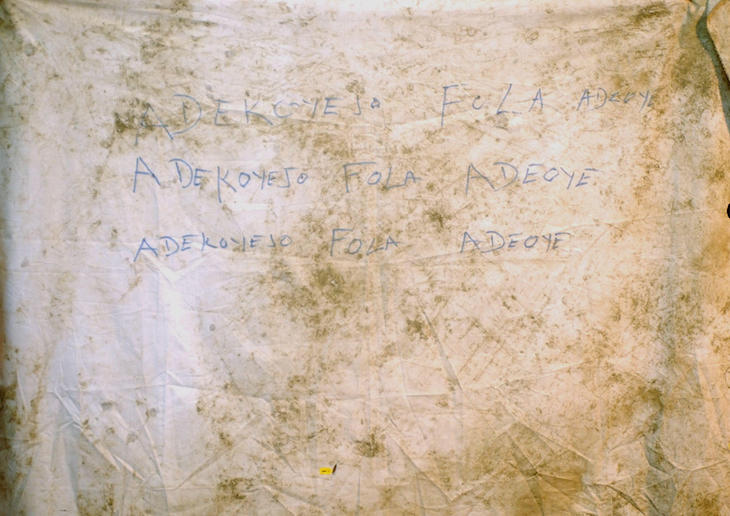 ADEKOYEJO FOLA ADEOYE
ADEKOYEJO FOLA ADEOYE
ADEKOYEJO FOLA ADEOYE